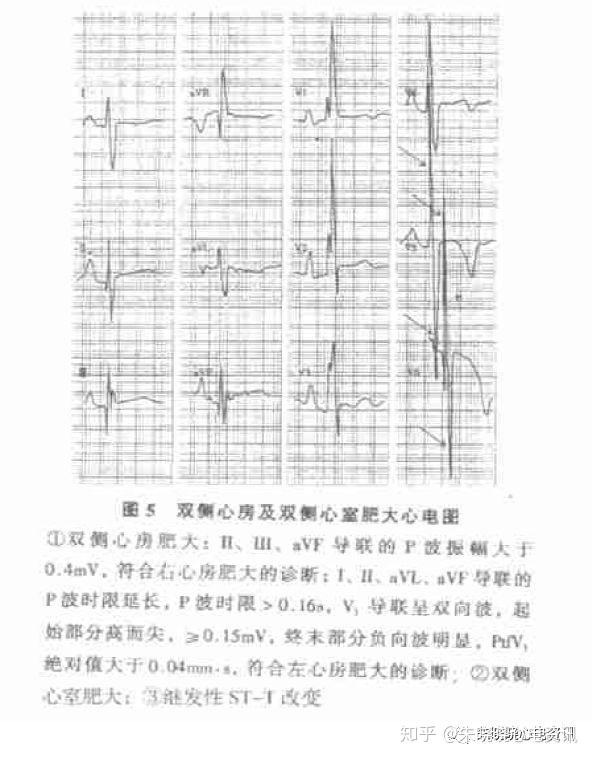 I
aVR
V1
图 5 双侧心房及双侧心室肥大心电图
①双侧心房肥大：II、III、aVF 导联的 P 波振幅大于
0.4mV，符合右心房肥大的诊断；I、II、aVL、aVF 导联的
P 波时限延长，P 波时限>0.16s，V₁ 导联呈双向波，起
始部分高而尖，≥0.15mV，终末部分负向波明显，PtfV₁
绝对值大于 0.04mm·s，符合左心房肥大的诊断；②双侧
心室肥大；③继发性 ST-T 改变
知乎 @朱晓晓心电资讯